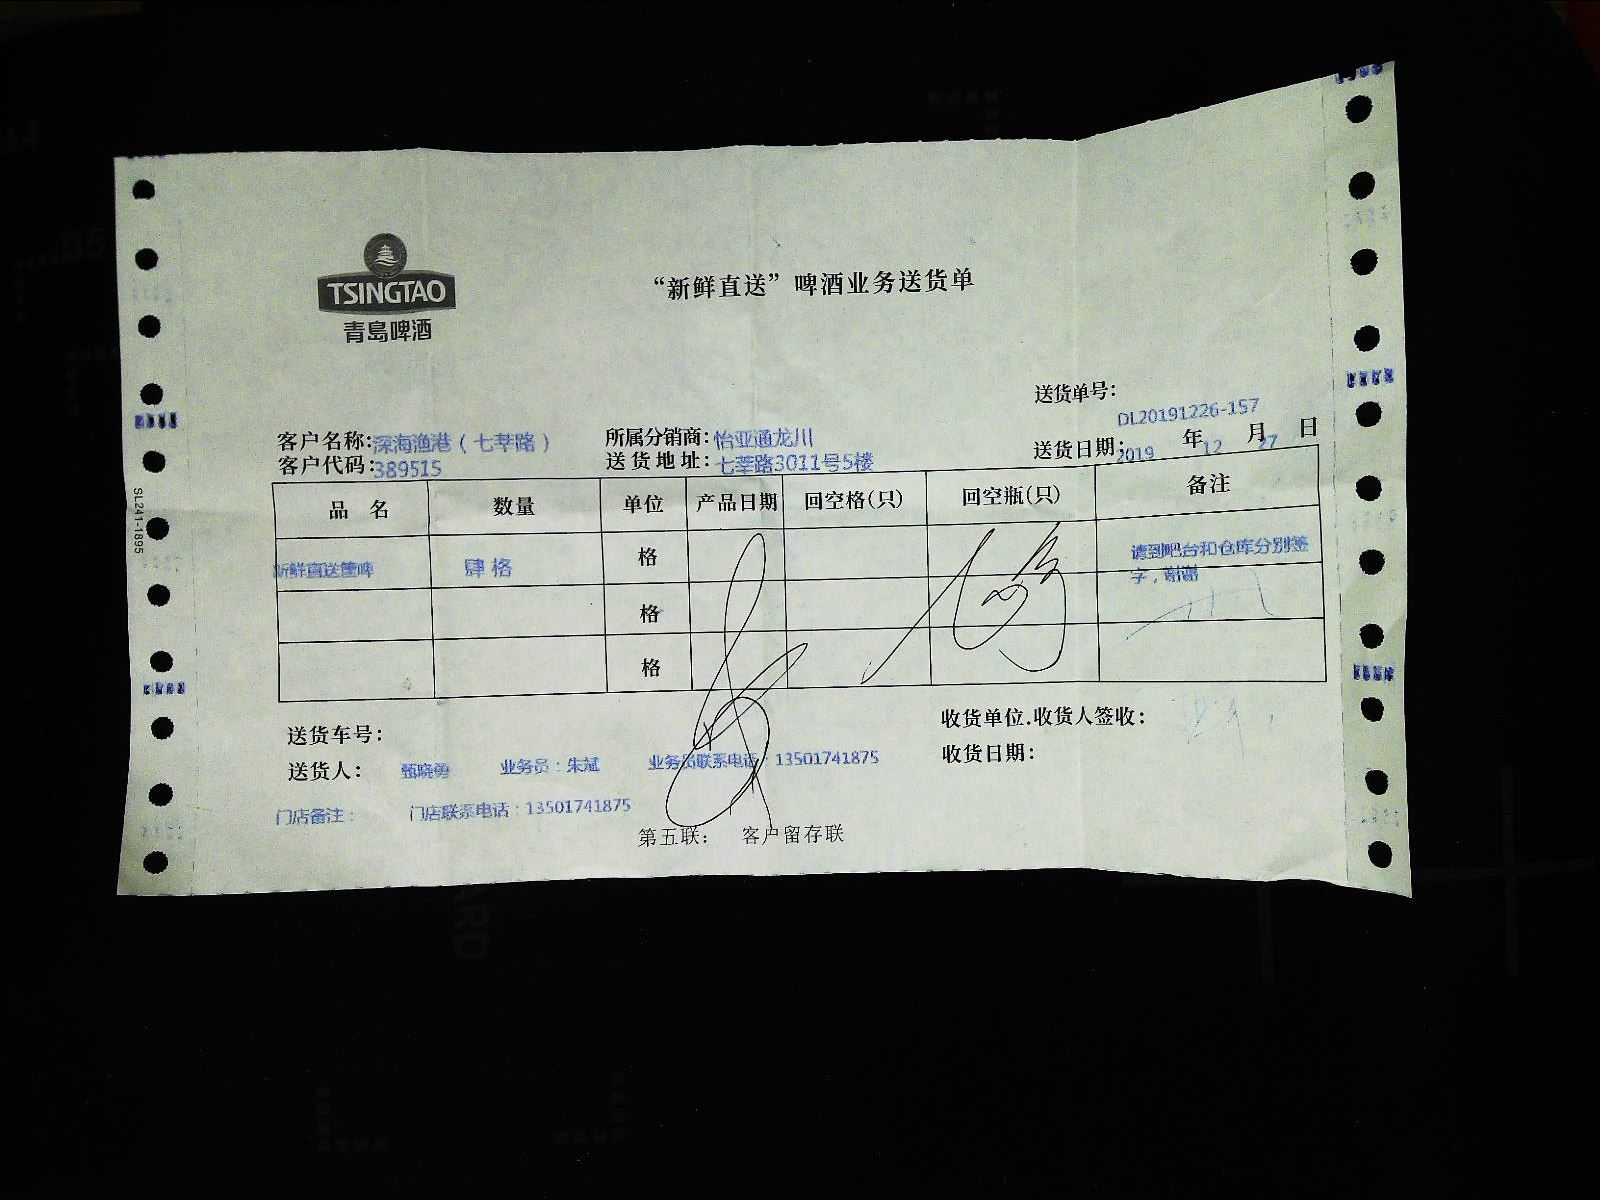 TSINGTAO
青島啤酒
“新鲜直送”啤酒业务送货单
送货单号:
DL20191226-157
客户名称:深海渔港（七莘路） 所属分销商:怡亚通龙川 送货日期:2019 年 12 月 27 日
客户代码:389515 送货地址:七莘路3011号5楼
品名 数量 单位 产品日期 回空格(只) 回空瓶(只) 备注
新鲜直送筐啤 肆格 格 请到吧台和仓库分别签
字，谢谢
格
格
送货车号: 收货单位.收货人签收:
送货人: 甄晓勇 业务员:朱斌 业务员联系电话:13501741875 收货日期:
门店备注: 门店联系电话:13501741875
第五联: 客户留存联
SL241-1895